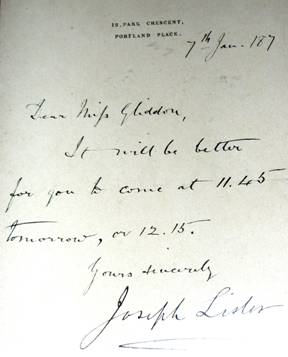 12, PARK CRESCENT,
PORTLAND PLACE.
7th Jan. 187
Dear Miss Gliddon,
It will be better
for you to come at 11.45
tomorrow, or 12.15.
Yours sincerely
Joseph Lister